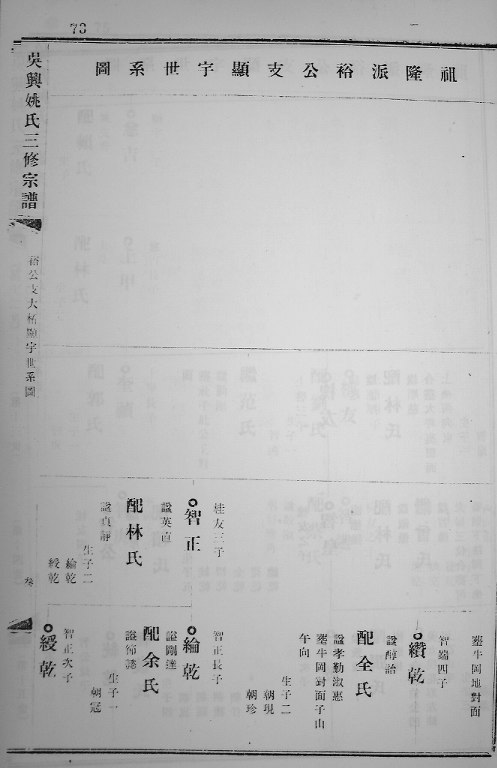 73
祖隆派裕公支顯宇世系圖
塟牛岡地對面
智端四子
纘乾
諡醇詒
配全氏
諡孝勤淑惠
塟牛岡對面子山
午向
生子二
朝現
朝珍
桂友三子
智正
諡英直
配林氏
諡貞靜
生子二
綸乾
綬乾
智正長子
綸乾
諡剛達
配余氏
生子一
朝冠
智正次子
綬乾
吳興姚氏三修宗譜
裕公支大柘顯宇世系圖